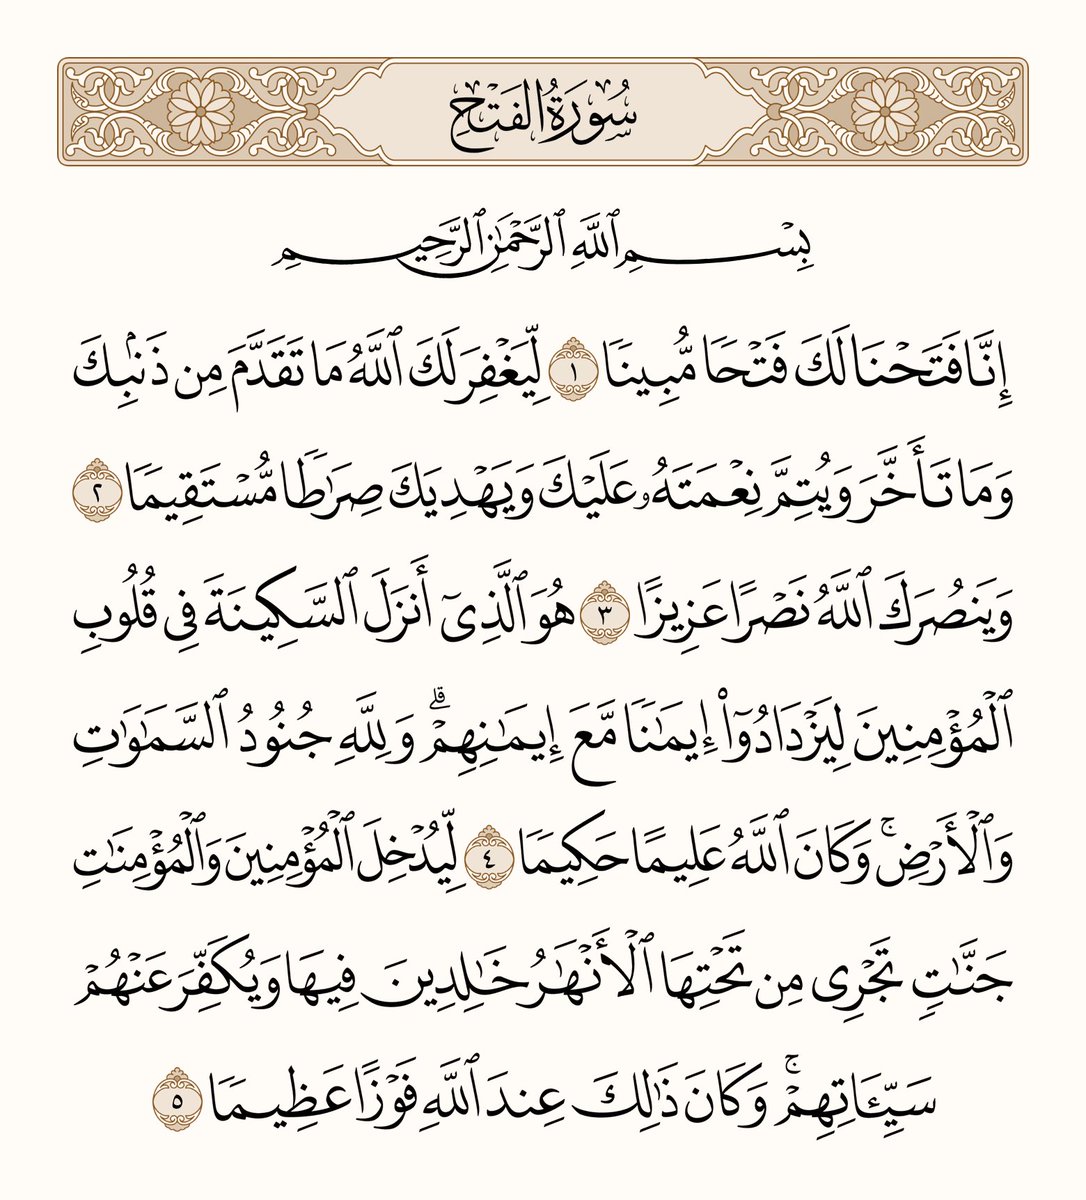 سُورَةُ الفَتْحِ
بِسْمِ ٱللَّهِ ٱلرَّحْمَٰنِ ٱلرَّحِيمِ
إِنَّا فَتَحْنَا لَكَ فَتْحًا مُّبِينًا ١ لِّيَغْفِرَ لَكَ ٱللَّهُ مَا تَقَدَّمَ مِن ذَنۢبِكَ
وَمَا تَأَخَّرَ وَيُتِمَّ نِعْمَتَهُۥ عَلَيْكَ وَيَهْدِيَكَ صِرَٰطًا مُّسْتَقِيمًا ٢
وَيَنصُرَكَ ٱللَّهُ نَصْرًا عَزِيزًا ٣ هُوَ ٱلَّذِىٓ أَنزَلَ ٱلسَّكِينَةَ فِى قُلُوبِ
ٱلْمُؤْمِنِينَ لِيَزْدَادُوٓا۟ إِيمَٰنًا مَّعَ إِيمَٰنِهِمْ ۗ وَلِلَّهِ جُنُودُ ٱلسَّمَٰوَٰتِ
وَٱلْأَرْضِ ۚ وَكَانَ ٱللَّهُ عَلِيمًا حَكِيمًا ٤ لِّيُدْخِلَ ٱلْمُؤْمِنِينَ وَٱلْمُؤْمِنَٰتِ
جَنَّٰتٍ تَجْرِى مِن تَحْتِهَا ٱلْأَنْهَٰرُ خَٰلِدِينَ فِيهَا وَيُكَفِّرَ عَنْهُمْ
سَيِّـَٔاتِهِمْ ۚ وَكَانَ ذَٰلِكَ عِندَ ٱللَّهِ فَوْزًا عَظِيمًا ٥